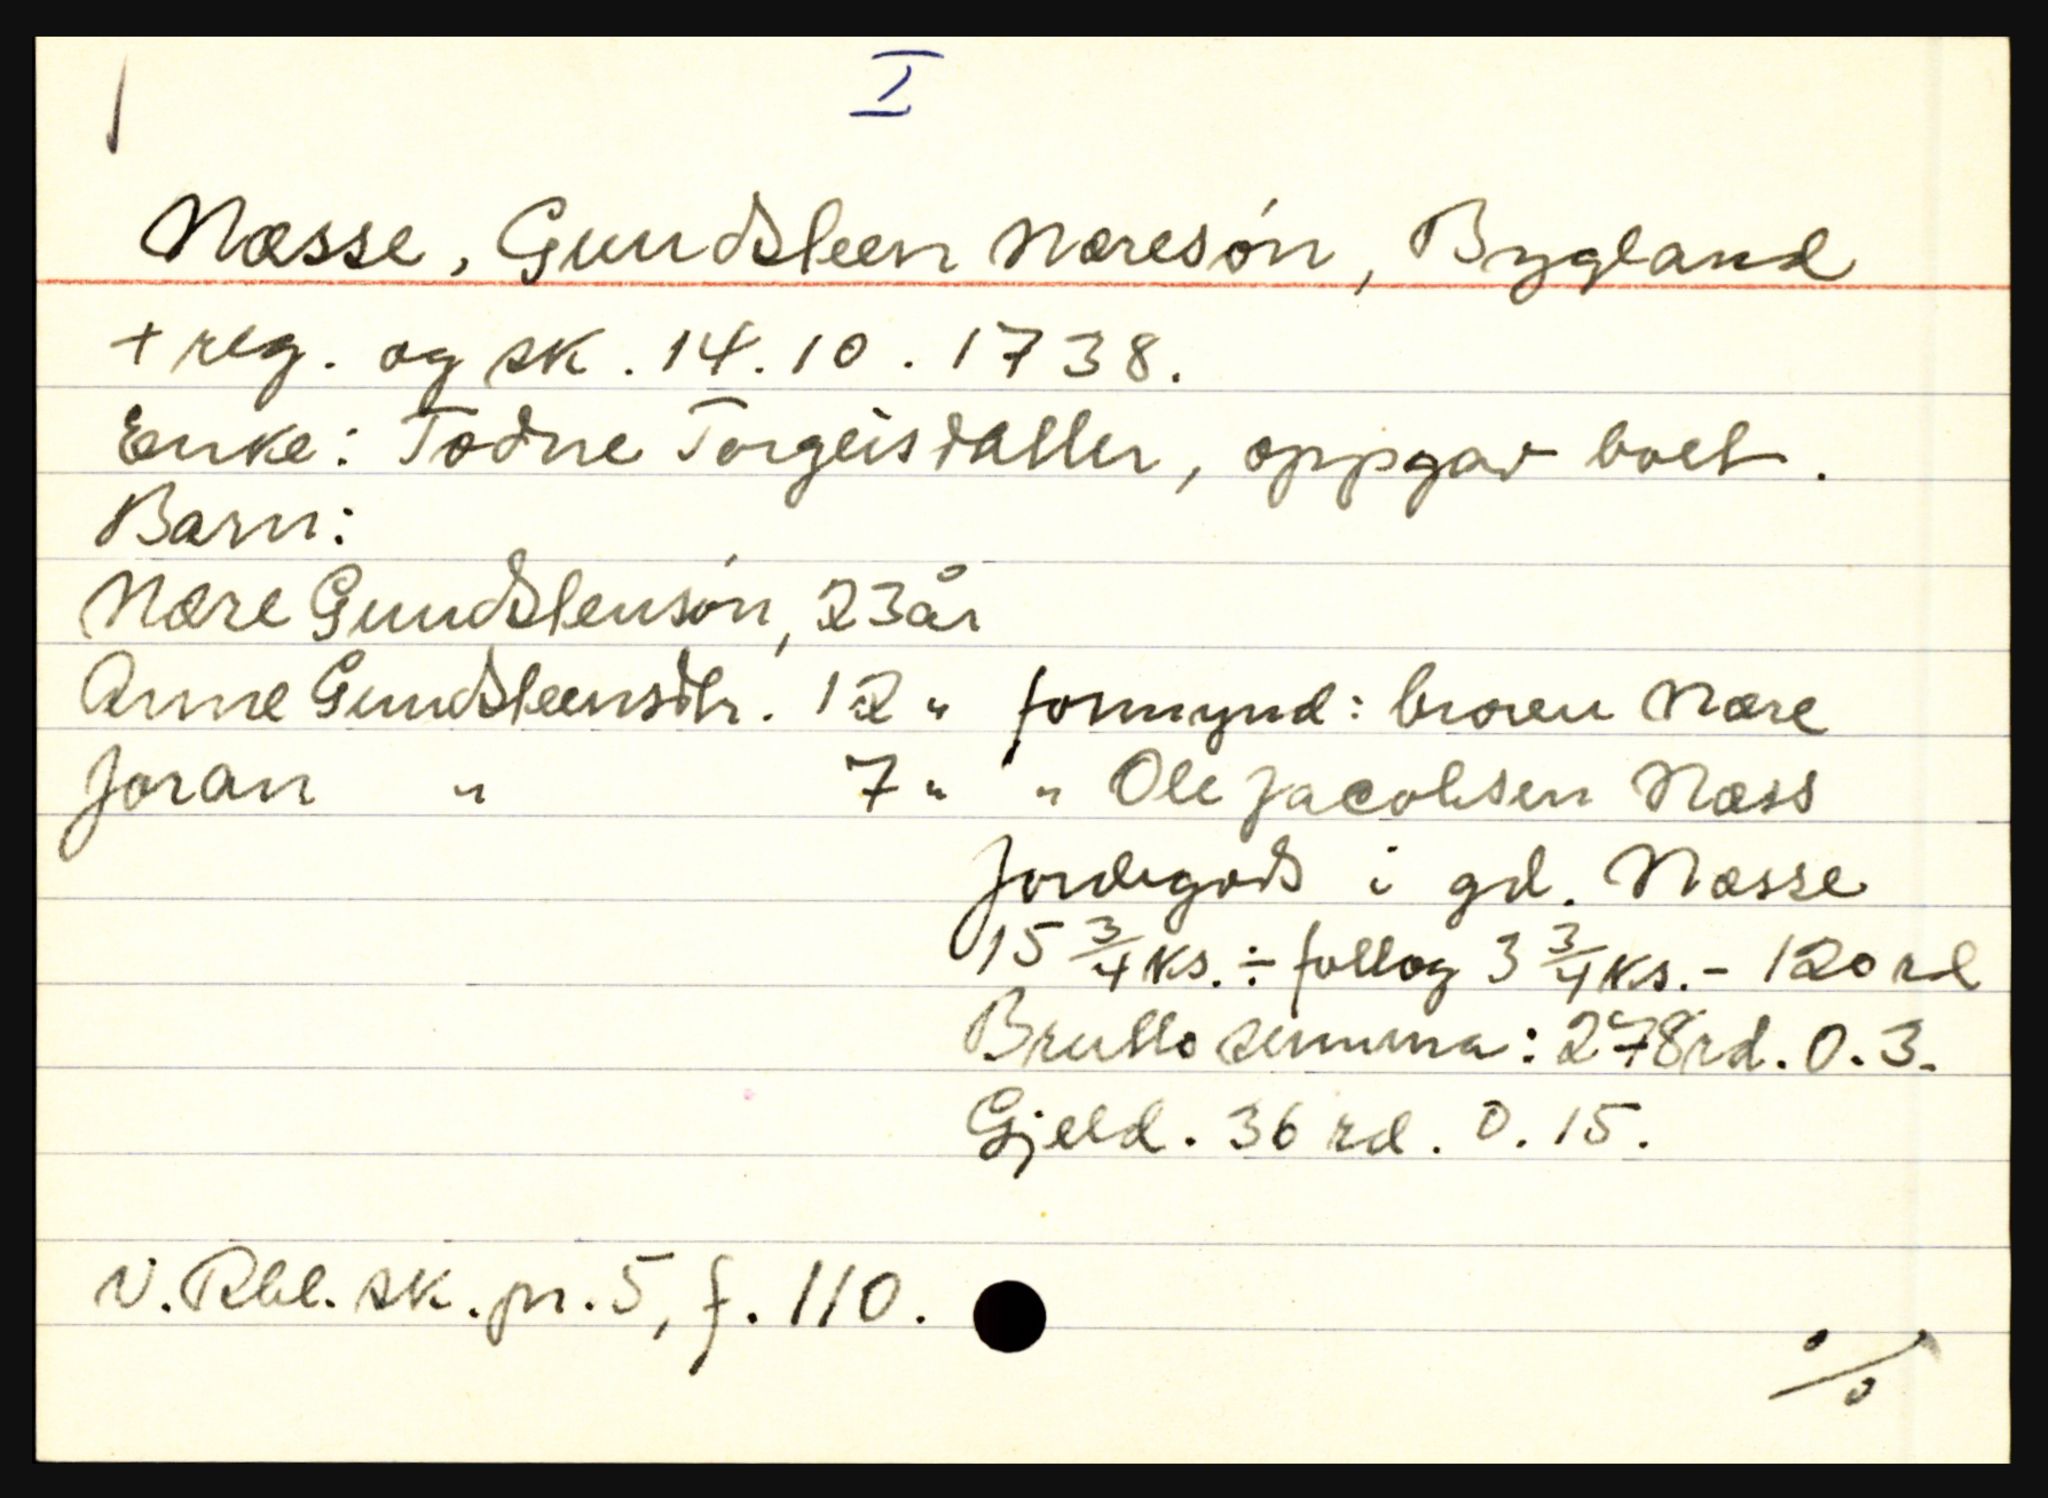 I
Næsse, Gundsteen Næresøn, Bygland
+ reg. og sk. 14.10.1738.
Enke: Todne Torgeisdatter, oppgav boet.
Barn:
Nære Gundstensøn, 23 år
Anne Gundsteensdtr. 12 " formynd: broren Nære
Joran " 7 " " Ole Jacobsen Næss
Jordegods i gd. Næsse
15 3/4 ks. ÷ follog 3 3/4 ks. - 120 rd
Brutto summa: 278 rd. 0. 3.
Gjeld. 36 rd. 0. 15.
N. Rbl. sk. pr. 5, f. 110.